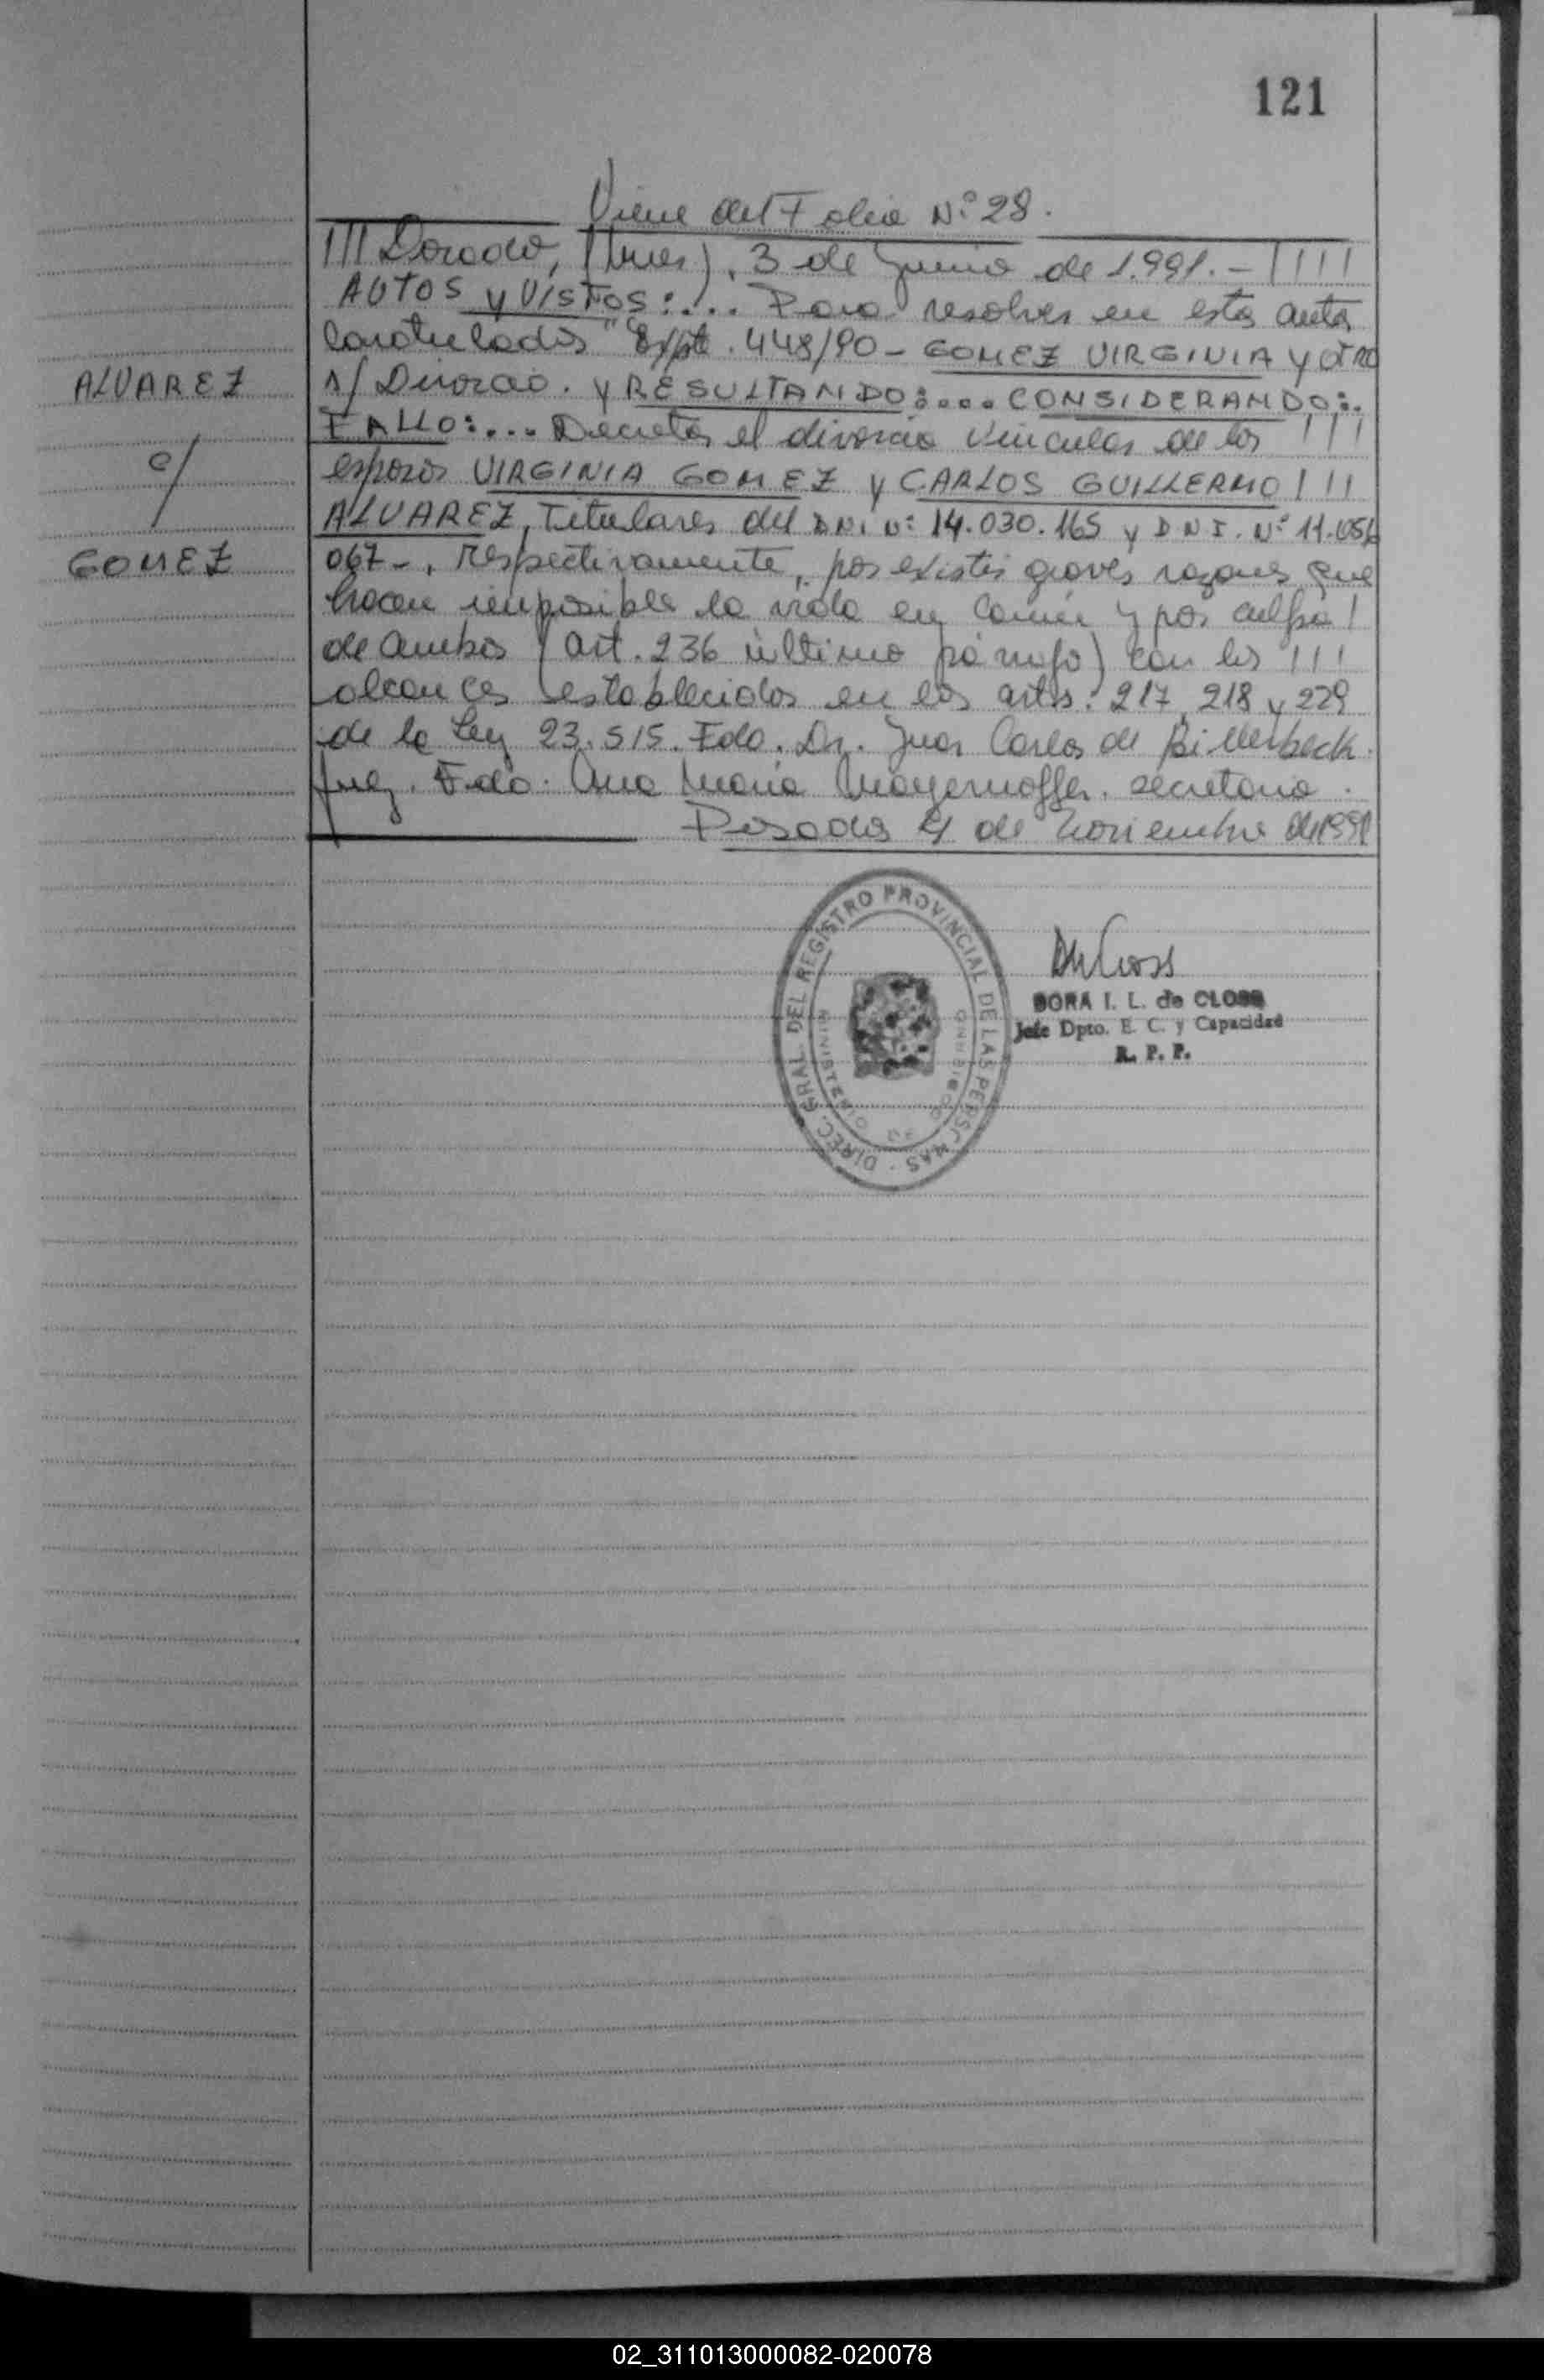 121
Viene del Folio N° 28.
III Dorado, (Mnes), 3 de Junio de 1.991.- IIII
AUTOS y VISTOS:.... Para resolver en estos autos
Caratulados "Expte. 448/90 - GOMEZ VIRGINIA y OTRO
ALVAREZ
s/ Divorcio. y RESULTANDO:.... CONSIDERANDO:.
FALLO:... Decretar el divorcio Vincular de los !!!
c/
esposos VIRGINIA GOMEZ y CARLOS GUILLERMO !!!
ALVAREZ, Titulares del DNI. N° 14.030.165 y D.N.I. N° 11.056
GOMEZ
067-, respectivamente, por existir graves razones que
hacen imposible la vida en Común y por culpa !
de ambos (art. 236 último párrafo) con los !!!
alcances establecidos en los arts. 217, 218 y 229
de la Ley 23.515. Fdo. Dr. Juan Carlos de Billerbeck.
Juez. Fdo. Ana María secretaria.
Posadas 4 de Noviembre de 1991
DIREC. GRAL. DEL REGISTRO PROVINCIAL DE LAS PERSONAS
MINISTERIO DE GOBIERNO
DORA I. L. de CLOSS
Jefe Dpto. E. C. y Capacidad
R. P. P.
02_311013000082-020078